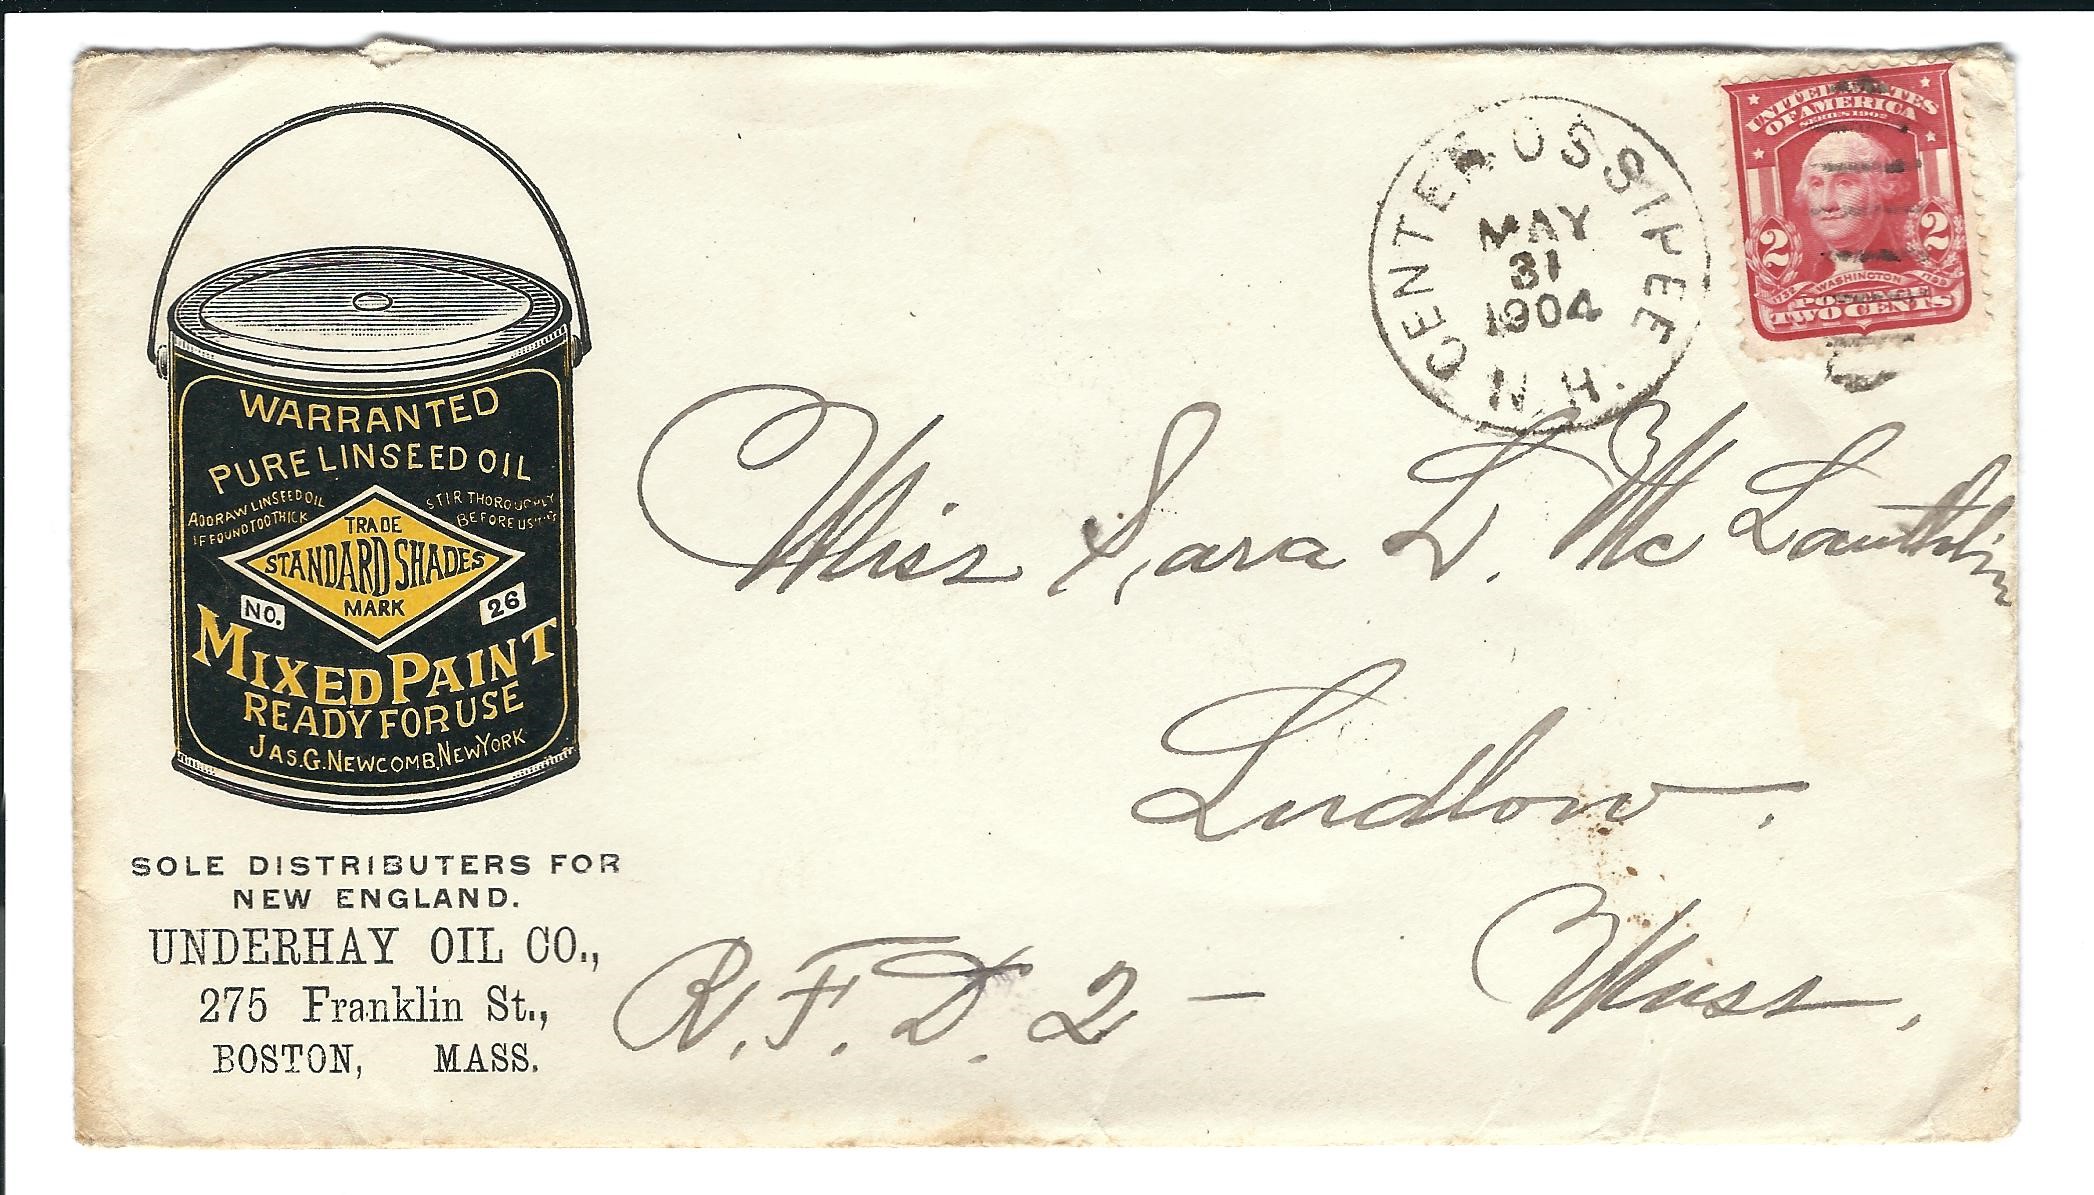 WARRANTED
PURE LINSEED OIL
ADD RAW LINSEED OIL
IF FOUND TOO THICK
STIR THOROUGHLY
BEFORE USING
TRADE
STANDARD SHADES
MARK
NO. 26
MIXED PAINT
READY FOR USE
JAS. G. NEWCOMB, NEW YORK
SOLE DISTRIBUTERS FOR
NEW ENGLAND.
UNDERHAY OIL CO.,
275 Franklin St.,
BOSTON, MASS.
CENTER OSSIPEE
MAY
31
1904
N.H.
UNITED STATES
OF AMERICA
SERIES 1902
2 2
1732 WASHINGTON 1799
POSTAGE
TWO CENTS
Miss Sara L. Mc Lauthlin
Ludlow.
Mass.
R.F.D. 2 —